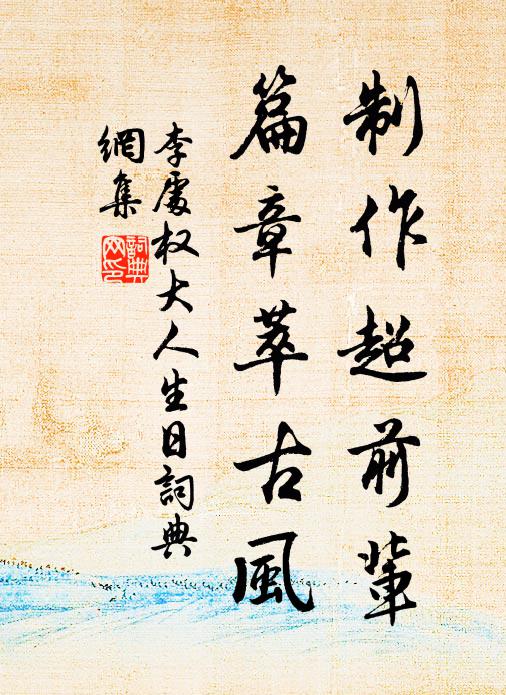 制作超前輩
篇章萃古風
李處权大人生日詞典
網集
詞典
网印